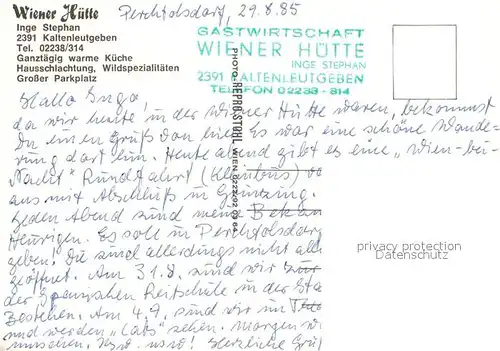 Wiener Hütte
Inge Stephan
2391 Kaltenleutgeben
Tel. 02238/314
Ganztägig warme Küche
Hausschlachtung, Wildspezialitäten
Großer Parkplatz
Perchtoldsdorf, 29.8.85
GASTWIRTSCHAFT
WIENER HÜTTE
INGE STEPHAN
2391 KALTENLEUTGEBEN
TELEFON 02238 - 314
PHOTO: REPRO-STOHL WIEN 0222/92 03 64
Hallo Inga!
da wir heute in der Wiener Hütte waren, bekommst
Du einen Gruß von hier. Es war eine schöne Wande-
rung dort hin. Heute abend gibt es eine „Wien-bei-
Nacht" Rundfahrt (Kleinbus)
aus mit Abschluß in Grinzing.
Jeden Abend sind
Heurigen. Es soll in Perchtoldsdorf
geben! Die sind allerdings nicht alle
geöffnet. Am 31.8. sind wir
der Spanischen Reitschule in der
Am 4.9. sind wir im
und werden „Cats" sehen. Morgen
usw. usw! Herzliche
privacy protection
Datenschutz